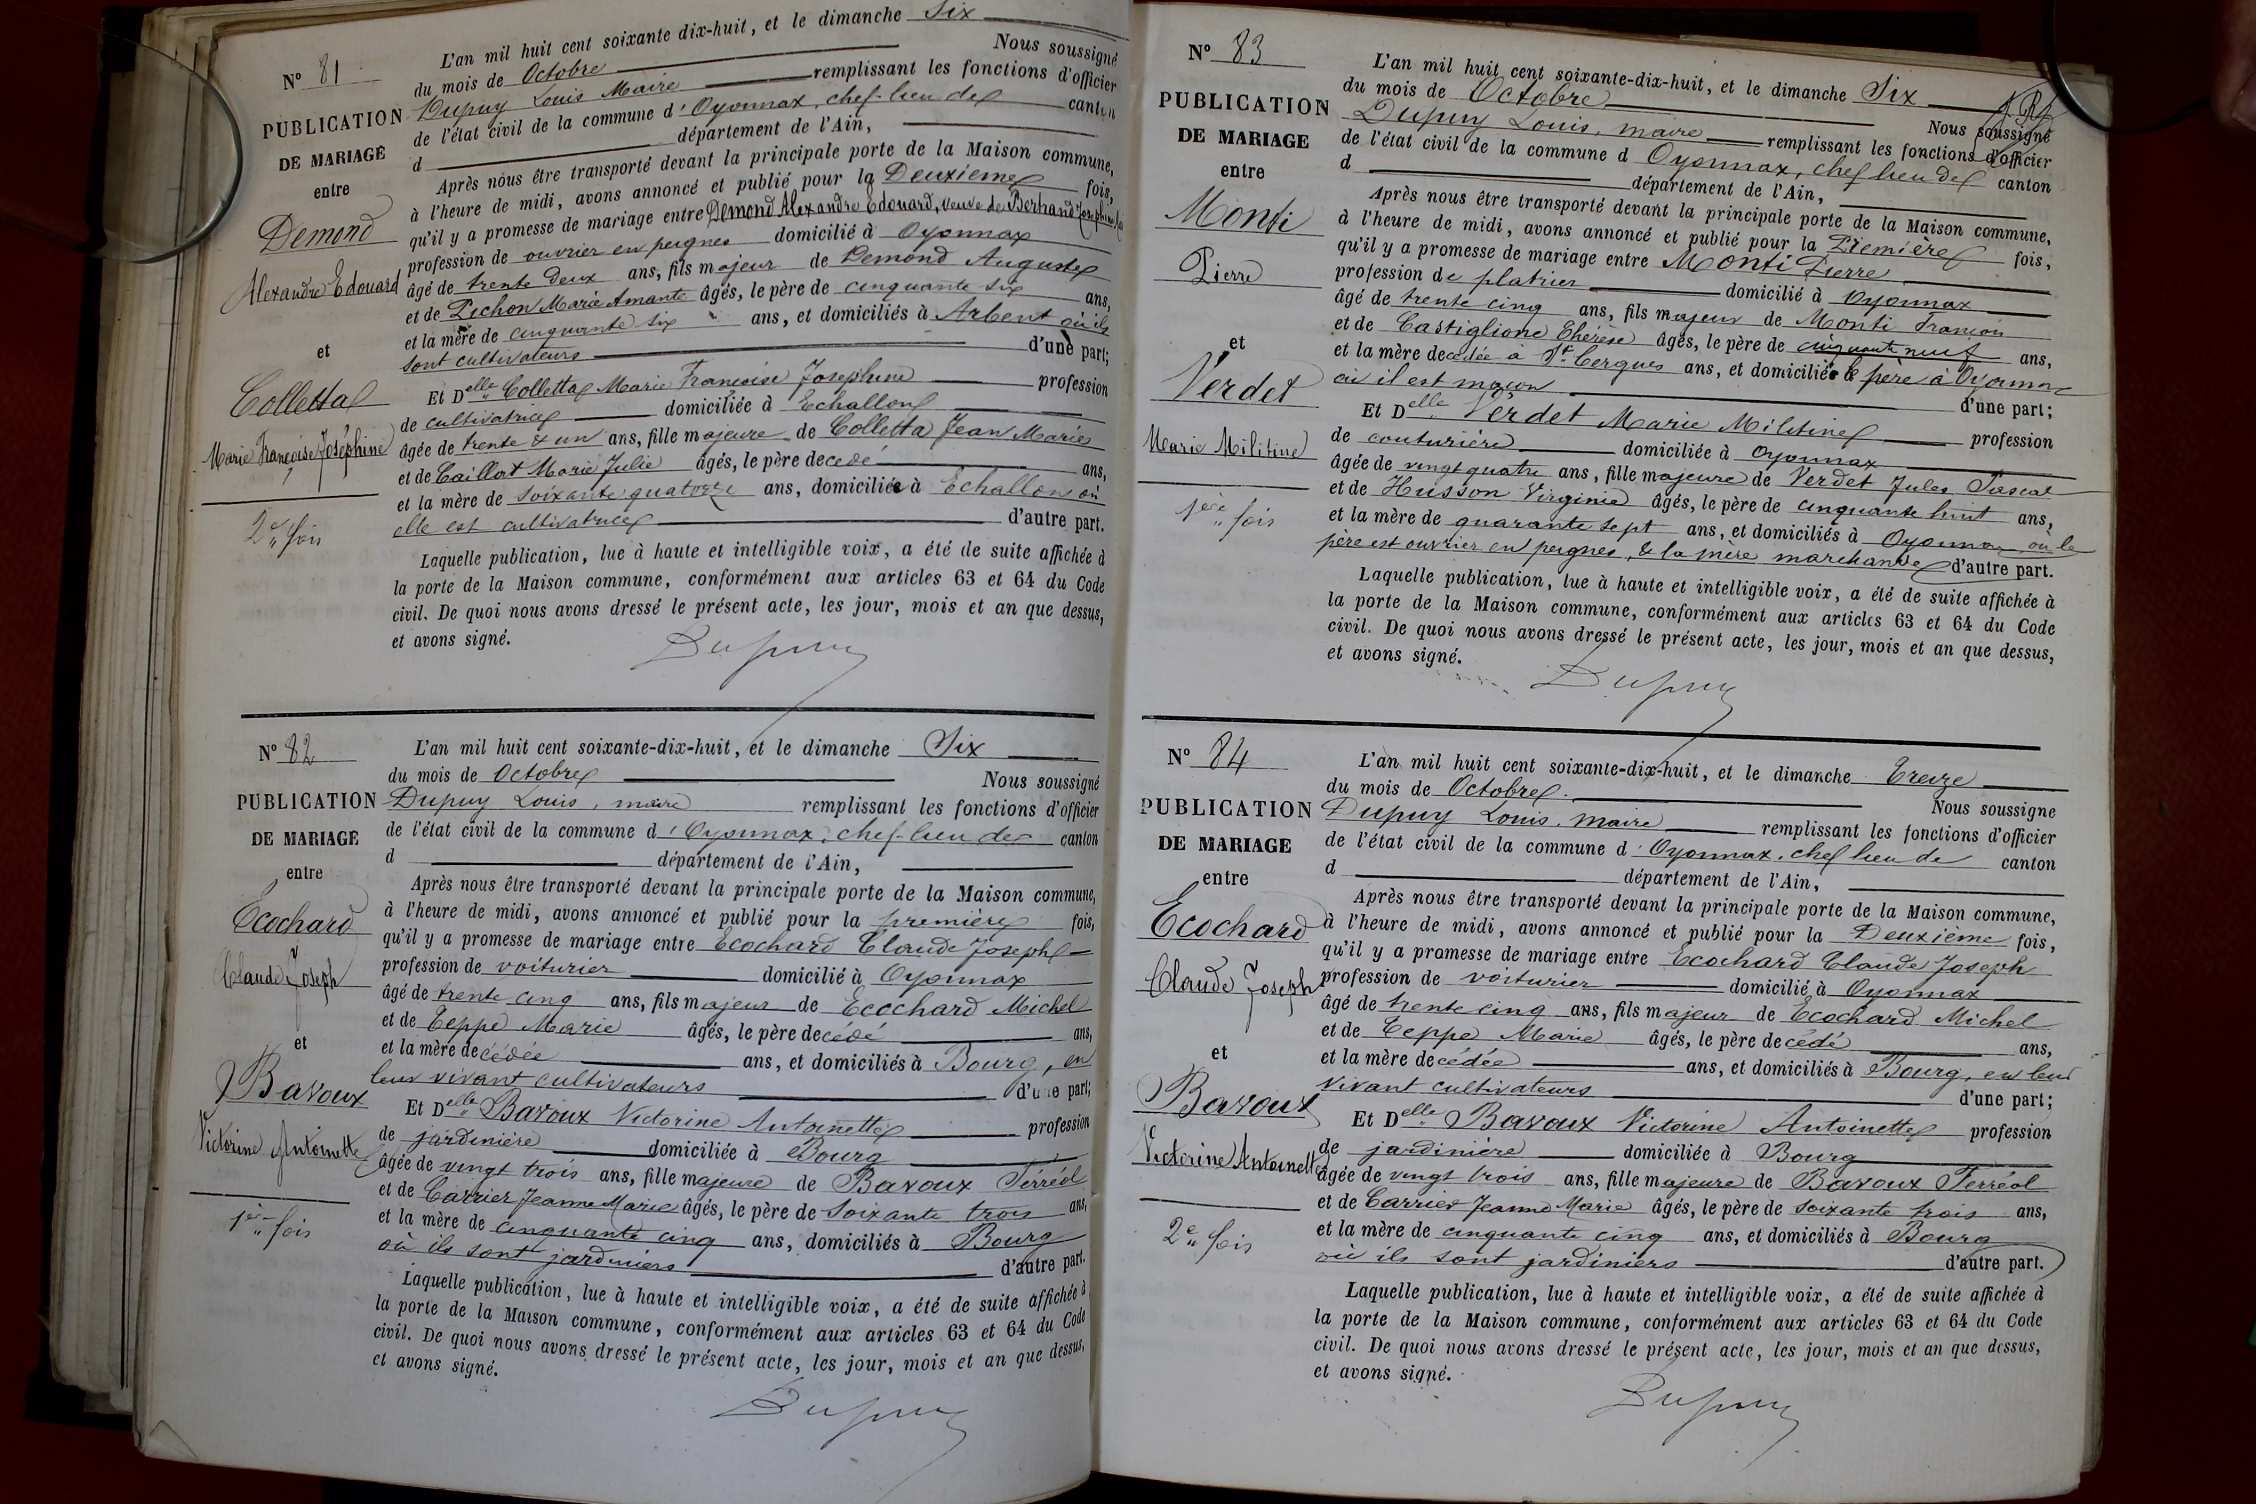 N° 81
PUBLICATION
DE MARIAGE
entre
Demond
Alexandre Edouard
et
Colletta
Marie Françoise Joséphine
2e fois
L'an mil huit cent soixante dix-huit, et le dimanche Six
du mois de Octobre Nous soussigné
Dupuy Louis Maire remplissant les fonctions d'officier
de l'état civil de la commune d'Oyonnax, chef-lieu de canton
d département de l'Ain,
Après nous être transporté devant la principale porte de la Maison commune,
à l'heure de midi, avons annoncé et publié pour la Deuxième fois,
qu'il y a promesse de mariage entre Demond Alexandre Edouard, veuf de Bertrand Josephine
profession de ouvrier en peignes domicilié à Oyonnax
âgé de trente deux ans, fils majeur de Demond Auguste
et de Pichon Marie Amante âgés, le père de cinquante six ans,
et la mère de cinquante six ans, et domiciliés à Arbent où ils
sont cultivateurs d'une part;
Et Delle Colletta Marie Françoise Josephine profession
de cultivatrice domiciliée à Echallon
âgée de trente & un ans, fille majeure de Colletta Jean Marie
et de Caillat Marie Julie âgés, le père decedé ans,
et la mère de soixante quatorze ans, domiciliée à Echallon où
elle est cultivatrice d'autre part.
Laquelle publication, lue à haute et intelligible voix, a été de suite affichée à
la porte de la Maison commune, conformément aux articles 63 et 64 du Code
civil. De quoi nous avons dressé le présent acte, les jour, mois et an que dessus,
et avons signé.
Dupuy
N° 82
PUBLICATION
DE MARIAGE
entre
Ecochard
Claude Joseph
et
Bavoux
Victorine Antoinette
1ère fois
L'an mil huit cent soixante-dix-huit, et le dimanche Six
du mois de Octobre Nous soussigné
Dupuy Louis, maire remplissant les fonctions d'officier
de l'état civil de la commune d'Oyonnax, chef-lieu de canton
d département de l'Ain,
Après nous être transporté devant la principale porte de la Maison commune,
à l'heure de midi, avons annoncé et publié pour la première fois,
qu'il y a promesse de mariage entre Ecochard Claude Joseph
profession de voiturier domicilié à Oyonnax
âgé de trente cinq ans, fils majeur de Ecochard Michel
et de Teppe Marie âgés, le père decédé ans,
et la mère decédée ans, et domiciliés à Bourg, en
leur vivant cultivateurs d'une part;
Et Delle Bavoux Victorine Antoinette profession
de jardinière domiciliée à Bourg
âgée de vingt trois ans, fille majeure de Bavoux Ferréol
et de Carrier Jeanne Marie âgés, le père de soixante trois ans,
et la mère de cinquante cinq ans, domiciliés à Bourg
où ils sont jardiniers d'autre part.
Laquelle publication, lue à haute et intelligible voix, a été de suite affichée à
la porte de la Maison commune, conformément aux articles 63 et 64 du Code
civil. De quoi nous avons dressé le présent acte, les jour, mois et an que dessus,
et avons signé.
Dupuy
N° 83
PUBLICATION
DE MARIAGE
entre
Monti
Pierre
et
Verdet
Marie Militine
1ère fois
L'an mil huit cent soixante-dix-huit, et le dimanche Six
du mois de Octobre Nous soussigné
Dupuy Louis, maire remplissant les fonctions d'officier
de l'état civil de la commune d Oyonnax, chef lieu de canton
d département de l'Ain,
Après nous être transporté devant la principale porte de la Maison commune,
à l'heure de midi, avons annoncé et publié pour la Première fois,
qu'il y a promesse de mariage entre Monti Pierre
profession de platrier domicilié à Oyonnax
âgé de trente cinq ans, fils majeur de Monti François
et de Castiglione Thérèse âgés, le père de cinquante neuf ans,
et la mère decédée à St Cergues ans, et domicilié le père à Oyonnax
où il est maçon d'une part;
Et Delle Verdet Marie Militine profession
de couturière domiciliée à Oyonnax
âgée de vingt quatre ans, fille majeure de Verdet Jules Pascal
et de Husson Virginie âgés, le père de cinquante huit ans,
et la mère de quarante sept ans, et domiciliés à Oyonnax où le
père est ouvrier en peignes, & la mère marchande d'autre part.
Laquelle publication, lue à haute et intelligible voix, a été de suite affichée à
la porte de la Maison commune, conformément aux articles 63 et 64 du Code
civil. De quoi nous avons dressé le présent acte, les jour, mois et an que dessus,
et avons signé.
Dupuy
N° 84
PUBLICATION
DE MARIAGE
entre
Ecochard
Claude Joseph
et
Bavoux
Victorine Antoinette
2e fois
L'an mil huit cent soixante-dix-huit, et le dimanche Treize
du mois de Octobre. Nous soussigne
Dupuy Louis, maire remplissant les fonctions d'officier
de l'état civil de la commune d'Oyonnax, chef lieu de canton
d département de l'Ain,
Après nous être transporté devant la principale porte de la Maison commune,
à l'heure de midi, avons annoncé et publié pour la Deuxième fois,
qu'il y a promesse de mariage entre Ecochard Claude Joseph
profession de voiturier domicilié à Oyonnax
âgé de trente cinq ans, fils majeur de Ecochard Michel
et de Teppe Marie âgés, le père decédé ans,
et la mère decédée ans, et domiciliés à Bourg, en leur
vivant cultivateurs d'une part;
Et Delle Bavoux Victorine Antoinette profession
de jardinière domiciliée à Bourg
âgée de vingt trois ans, fille majeure de Bavoux Ferréol
et de Carrier Jeanne Marie âgés, le père de soixante trois ans,
et la mère de cinquante cinq ans, et domiciliés à Bourg
où ils sont jardiniers d'autre part.
Laquelle publication, lue à haute et intelligible voix, a été de suite affichée à
la porte de la Maison commune, conformément aux articles 63 et 64 du Code
civil. De quoi nous avons dressé le présent acte, les jour, mois et an que dessus,
et avons signé.
Dupuy